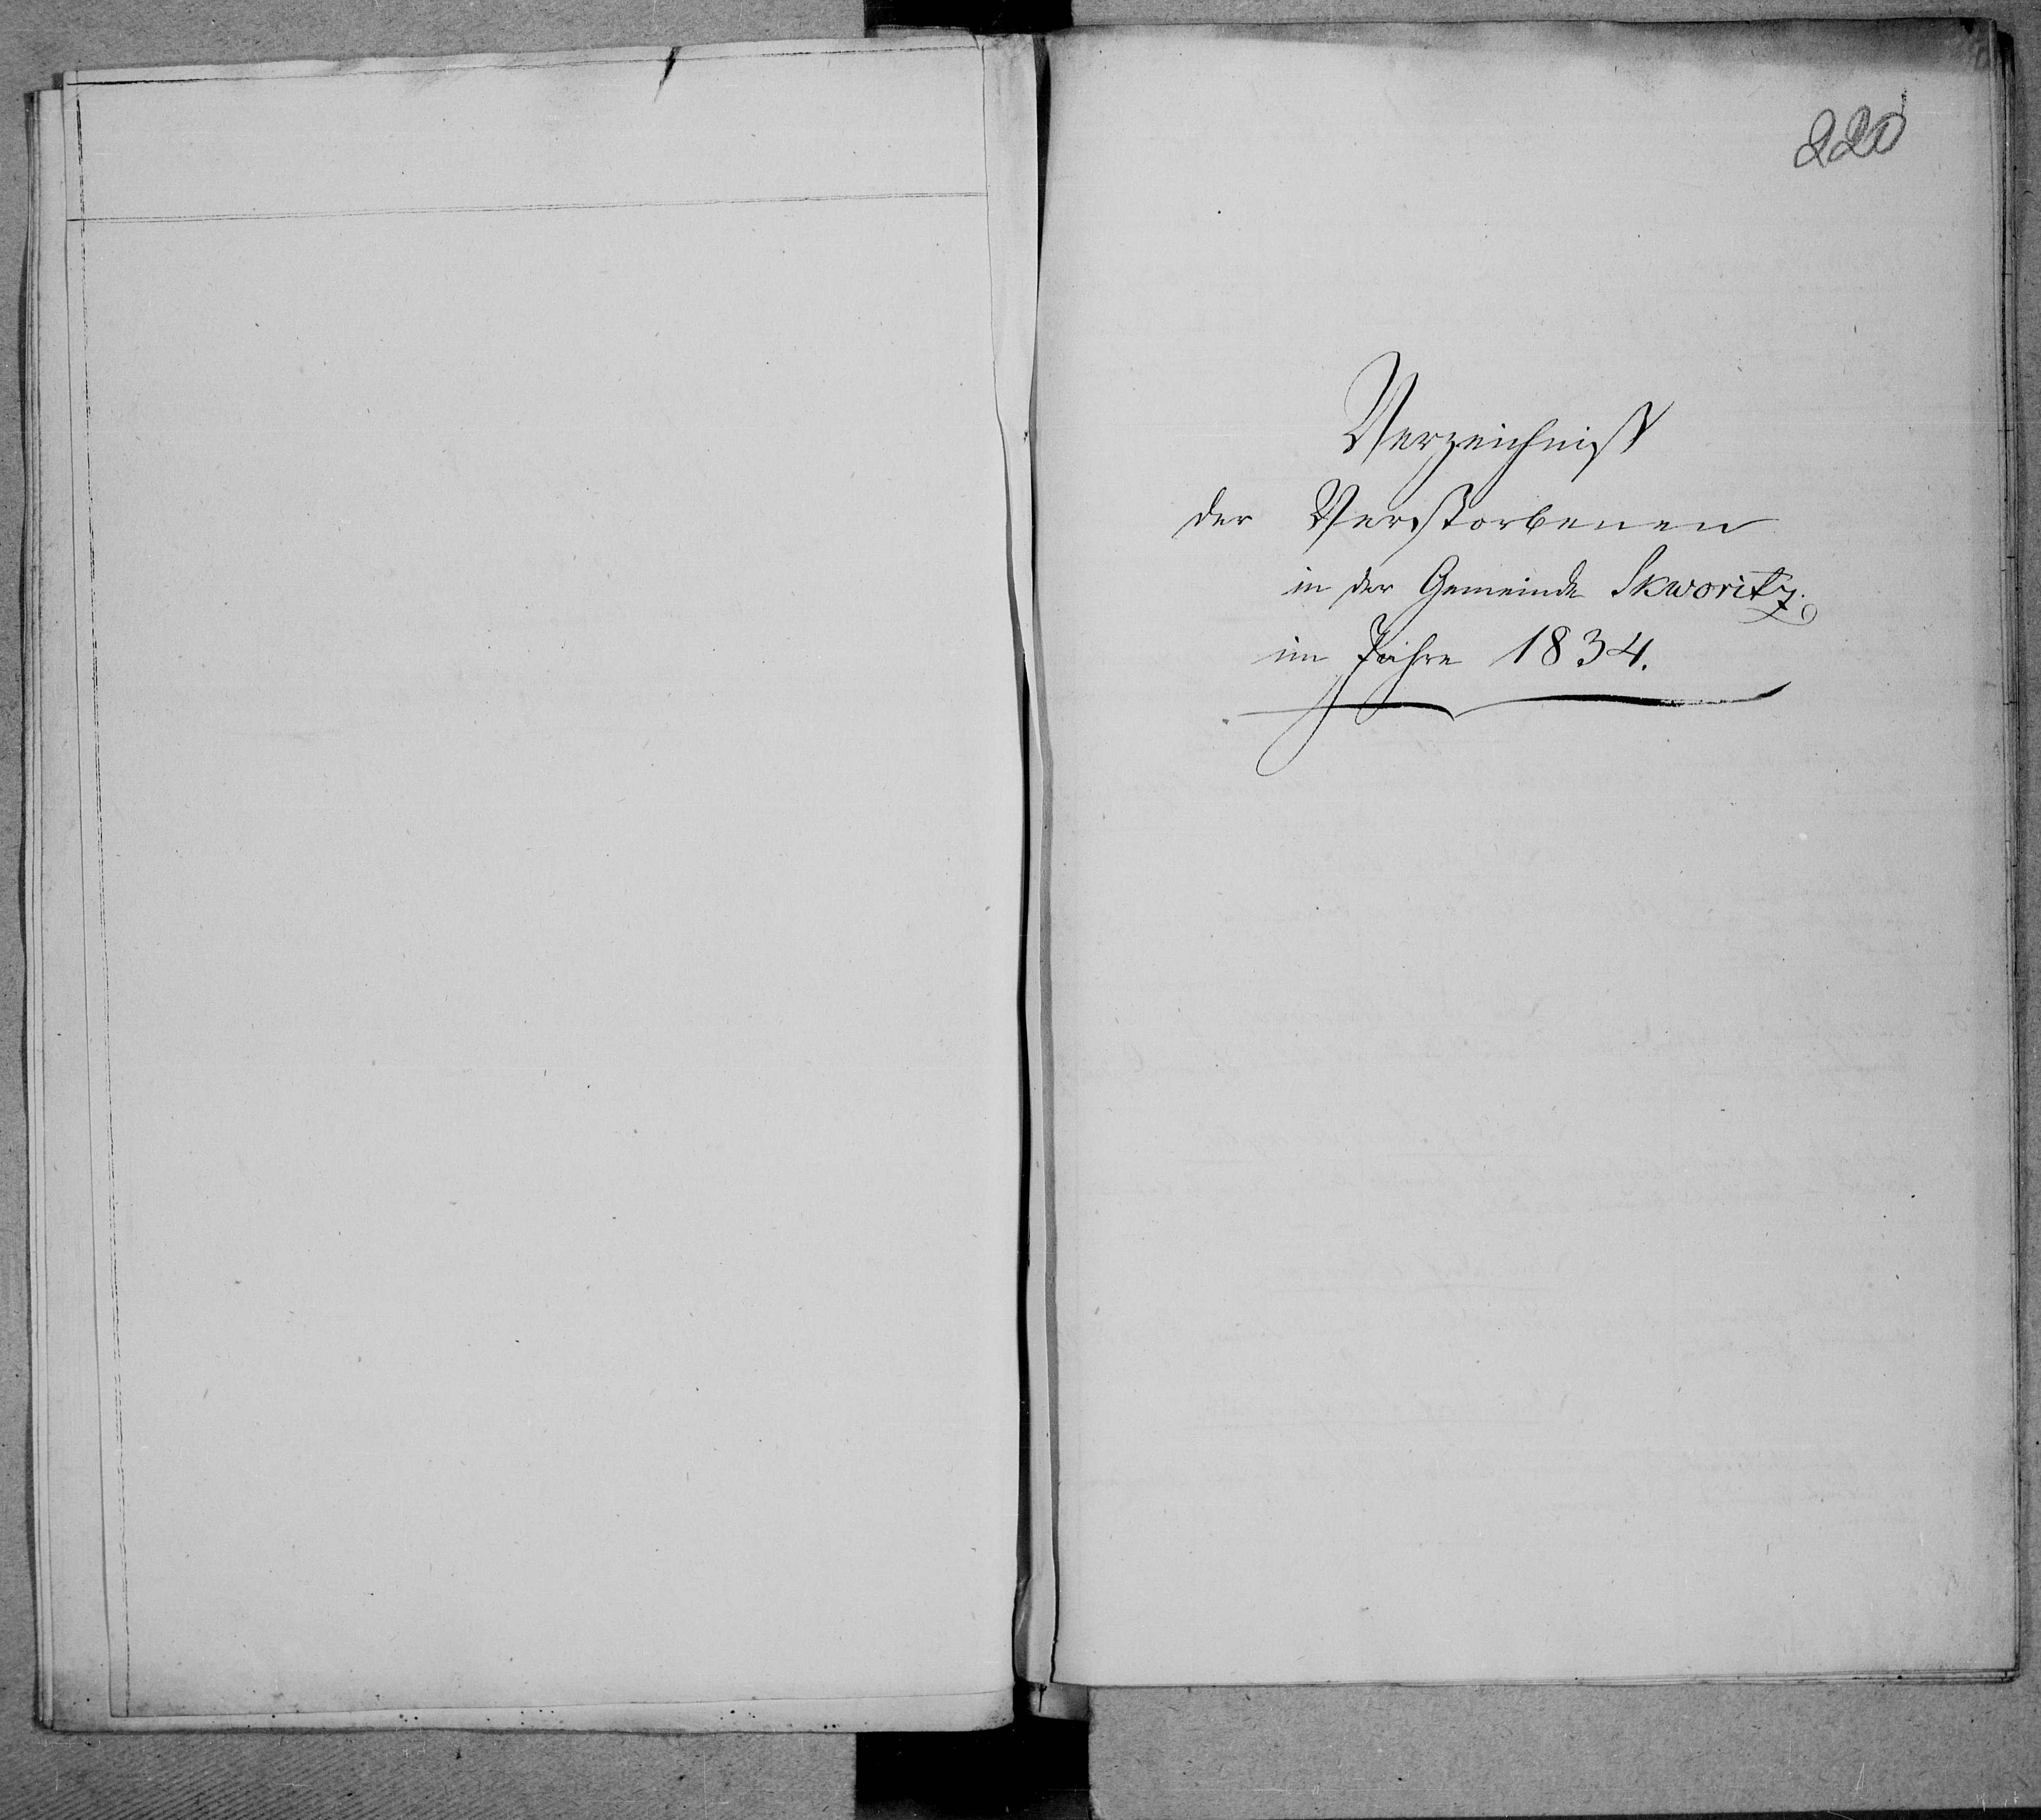 220
Verzeichniß
der Verstorbenen
in der Gemeinde Skworitz.
im Jahre 1834.